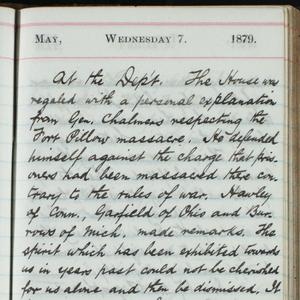 May, Wednesday 7. 1879.
At the Dept. The House was
regaled with a personal explanation
from Gen. Chalmers respecting the
Fort Pillow massacre. He defended
himself against the charge that pris-
oners had been massacred there con-
trary to the rules of war. Hawley
of Conn., Garfield of Ohio and Bur-
rows of Mich. made remarks. The
spirit which has been exhibited towards
us in years past could not be cherished
for us alone and then be dismissed. It